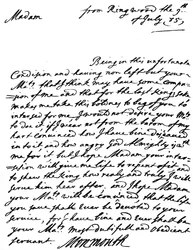 from Ringwood the 9th
Madam of July. 85.
Being in this unfortunate
Condition and having non left but your
Maty. that I think may have some compas
sion of me and that for the last Kings sake
makes me take this boldnes to beg of you to
intersed for me, I would not desire your Maty
to doe it if I wear not from the botom of my
hart convinced how I have bine disceaved
in to it and how angry God Almighty is with
me for it but I hope Madam your inter
sesion will give me life to repent of it and
to shew the King how realy and truly I will
serve him hear after, and I hope Madam
your Maty. will be convinced that the life
you save will ever be devoted to your
service, for I have bine and ever shall be
your Matys. most dutifull and obedient
servant Monmouth